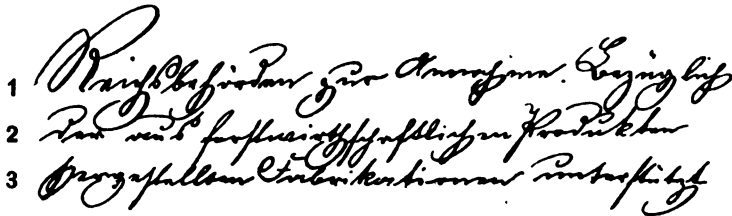 1 Reichsbehörden zur Annahme. Bezüglich
2 der aus forstwirthschaftlichen Produkten
3 hergestellten Fabrikationen unterstützt